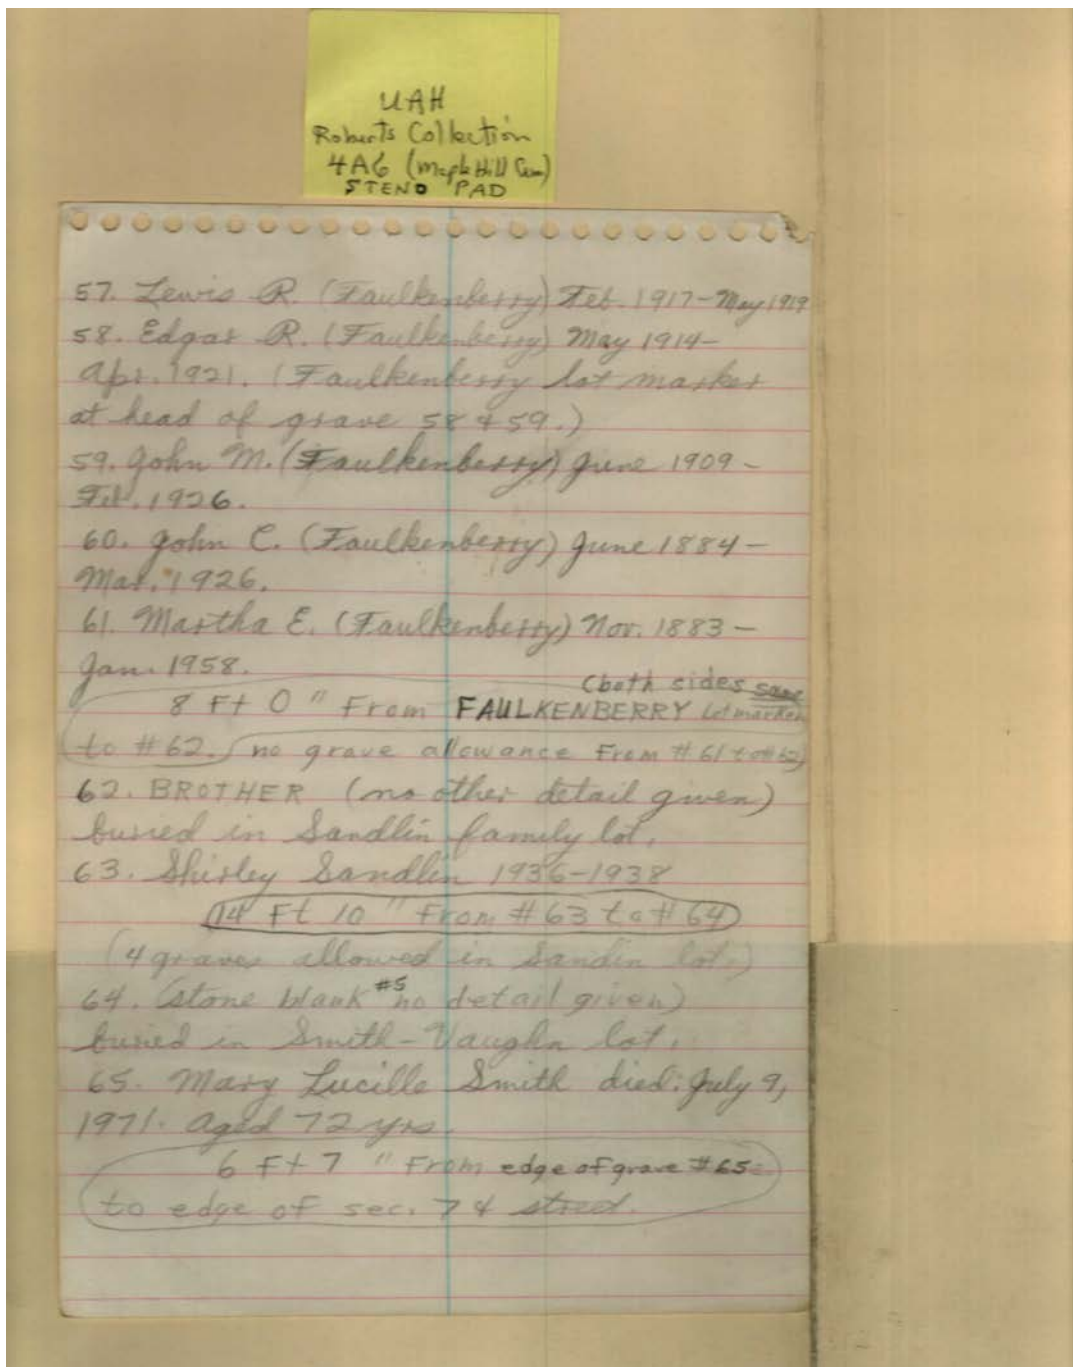 UAH
Roberts Collection
4A6 (Maple Hill Cem)
STENO PAD
57. Lewis R. (Faulkenberry) Feb. 1917-May 1919
58. Edgar R. (Faulkenberry) May 1914-
Apr. 1921. (Faulkenberry lot marker
at head of grave 58 & 59.)
59. John M. (Faulkenberry) June 1909-
Feb. 1926.
60. John C. (Faulkenberry) June 1884-
Mar. 1926.
61. Martha E. (Faulkenberry) Nov. 1883-
Jan. 1958.
(both sides same
8 Ft 0" From FAULKENBERRY Lot marker
to #62. (no grave allowance From #61 to #62)
62. BROTHER (no other detail given)
buried in Sandlin family lot.
63. Shirley Sandlin 1936-1938
14 Ft 10" From #63 to #64
(4 graves allowed in Sandin lot.)
64. (stone blank #5 no detail given)
buried in Smith-Vaughn lot.
65. Mary Lucille Smith died: July 9,
1971. aged 72 yrs.
6 Ft 7" From edge of grave #65
to edge of sec. 7 & street.